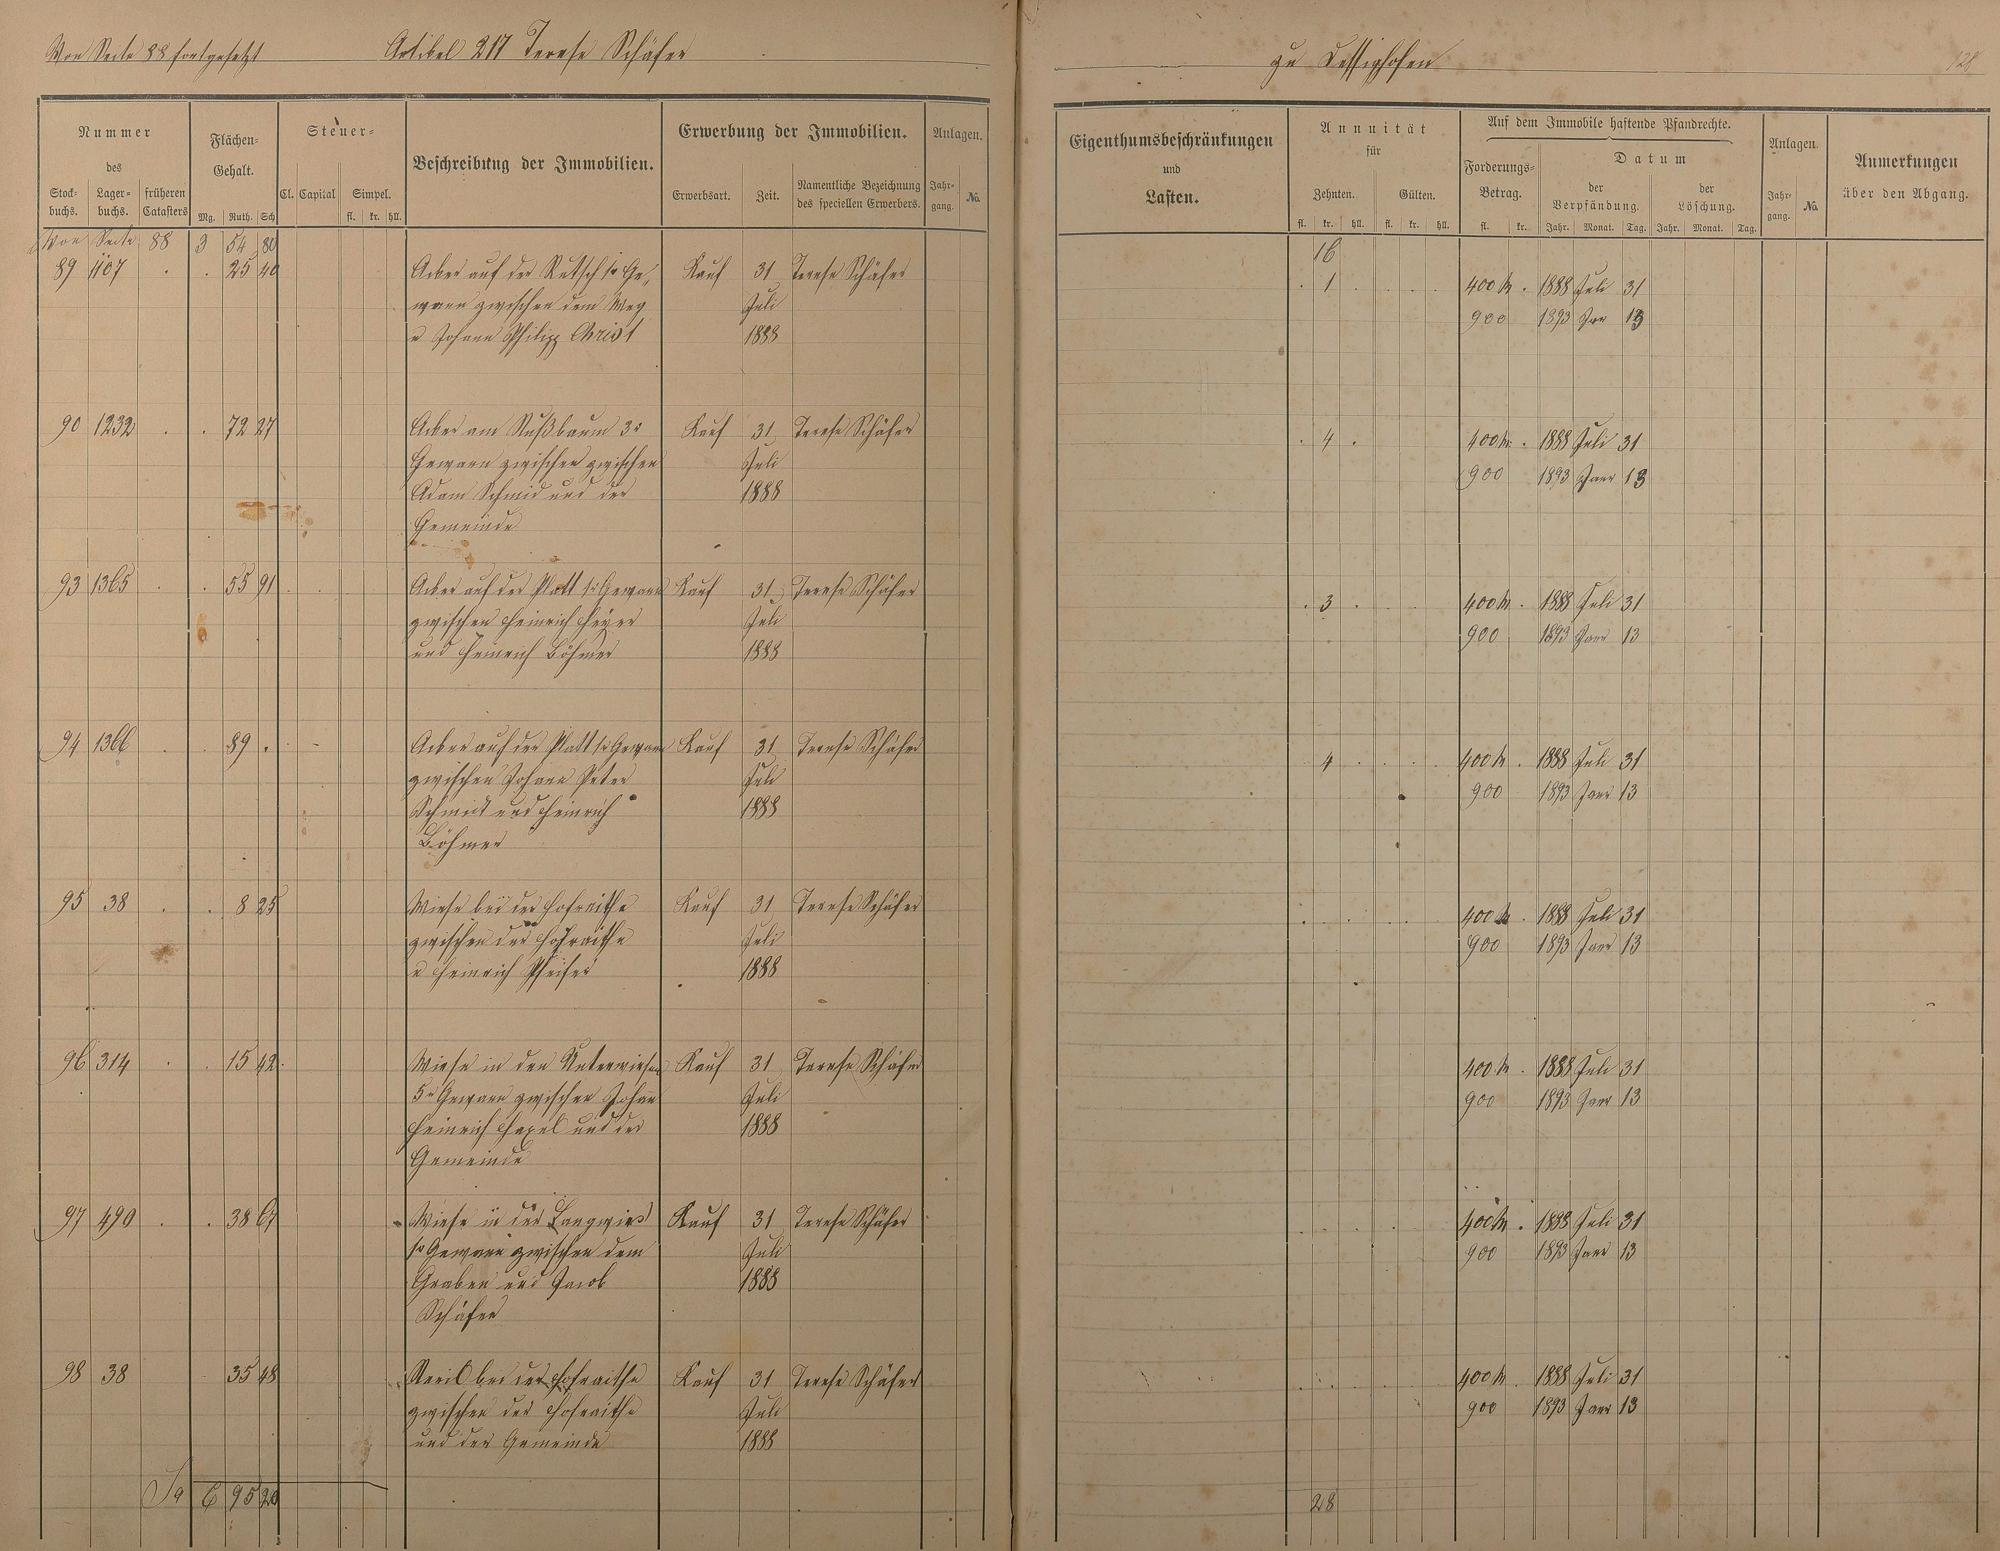 Von Seite 88 fortgesetzt
Artikel 217 Terese Schäfer
Nummer
des
Stock-
buchs.
Lager-
buchs.
früheren
Catasters
Flächen-
Gehalt.
Mg. Ruth. Sch
Steuer-
Cl. Capital Simpel.
fl. kr. hll.
Beschreibung der Immobilien.
Erwerbung der Immobilien.
Erwerbsart. Zeit.
Namentliche Bezeichnung
des speciellen Erwerbers.
Anlagen.
Jahr-
gang.
No.
Von Seite 88 3 54 80
89 1107 . . 25 40 Acker auf der Rutsch 1r Ge- Kauf 31 Terese Schäfer
wann zwischen dem Weg Juli
u Johann Philipp Christ 1888
90 1232 . . 72 27 Acker am Nußbaum 3r Kauf 31 Terese Schäfer
Gewann zwischen zwischen Juli
Adam Schmid und der 1888
Gemeinde
93 1365 . . 55 91 Acker auf der Platt 1r Gewann Kauf 31 Terese Schäfer
zwischen Heinrich Heyer Juli
und Heinrich Böhmer 1888
94 1366 . . 89 . Acker auf der Platt 1r Gewann Kauf 31 Terese Schäfer
zwischen Johann Peter Juli
Schmidt und Heinrich 1888
Böhmer
95 38 . . 8 25 Wiese bei der Hofraithe Kauf 31 Terese Schäfer
zwischen der Hofraithe Juli
u Heinrich Pfeifer 1888
96 314 . . 15 42 Wiese in den Unterwiesen Kauf 31 Terese Schäfer
5r Gewann zwischen Johann Juli
Heinrich und der 1888
Gemeinde
97 490 . . 38 67 Wiese in der Langwies Kauf 31 Terese Schäfer
1r Gewann zwischen dem Juli
Graben und Jacob 1888
Schäfer
98 38 . 35 48 bei der Hofraithe Kauf 31 Terese Schäfer
zwischen der Hofraithe Juli
und der Gemeinde 1888
Sa 6 95 20
zu Dessighofen
128
Eigenthumsbeschränkungen
und
Lasten.
Annuität
für
Zehnten. Gülten.
fl. kr. hll. fl. kr. hll.
Auf dem Immobile haftende Pfandrechte.
Forderungs-
Betrag.
fl. kr.
Datum
der
Verpfändung.
Jahr. Monat. Tag.
der
Löschung.
Jahr. Monat. Tag.
Anlagen.
Jahr-
gang.
No.
Anmerkungen
über den Abgang.
16
. 1 . 400 M . 1888 Juli 31
900 1893 Janr 13
. 4 . 400 M . 1888 Juli 31
900 1893 Janr 13
. 3 . 400 M . 1888 Juli 31
900 1893 Janr 13
4 . 400 M . 1888 Juli 31
900 1893 Janr 13
400 M . 1888 Juli 31
900 1893 Janr 13
400 M . 1888 Juli 31
900 1893 Janr 13
400 M . 1888 Juli 31
900 1893 Janr 13
400 M . 1888 Juli 31
900 1893 Janr 13
28